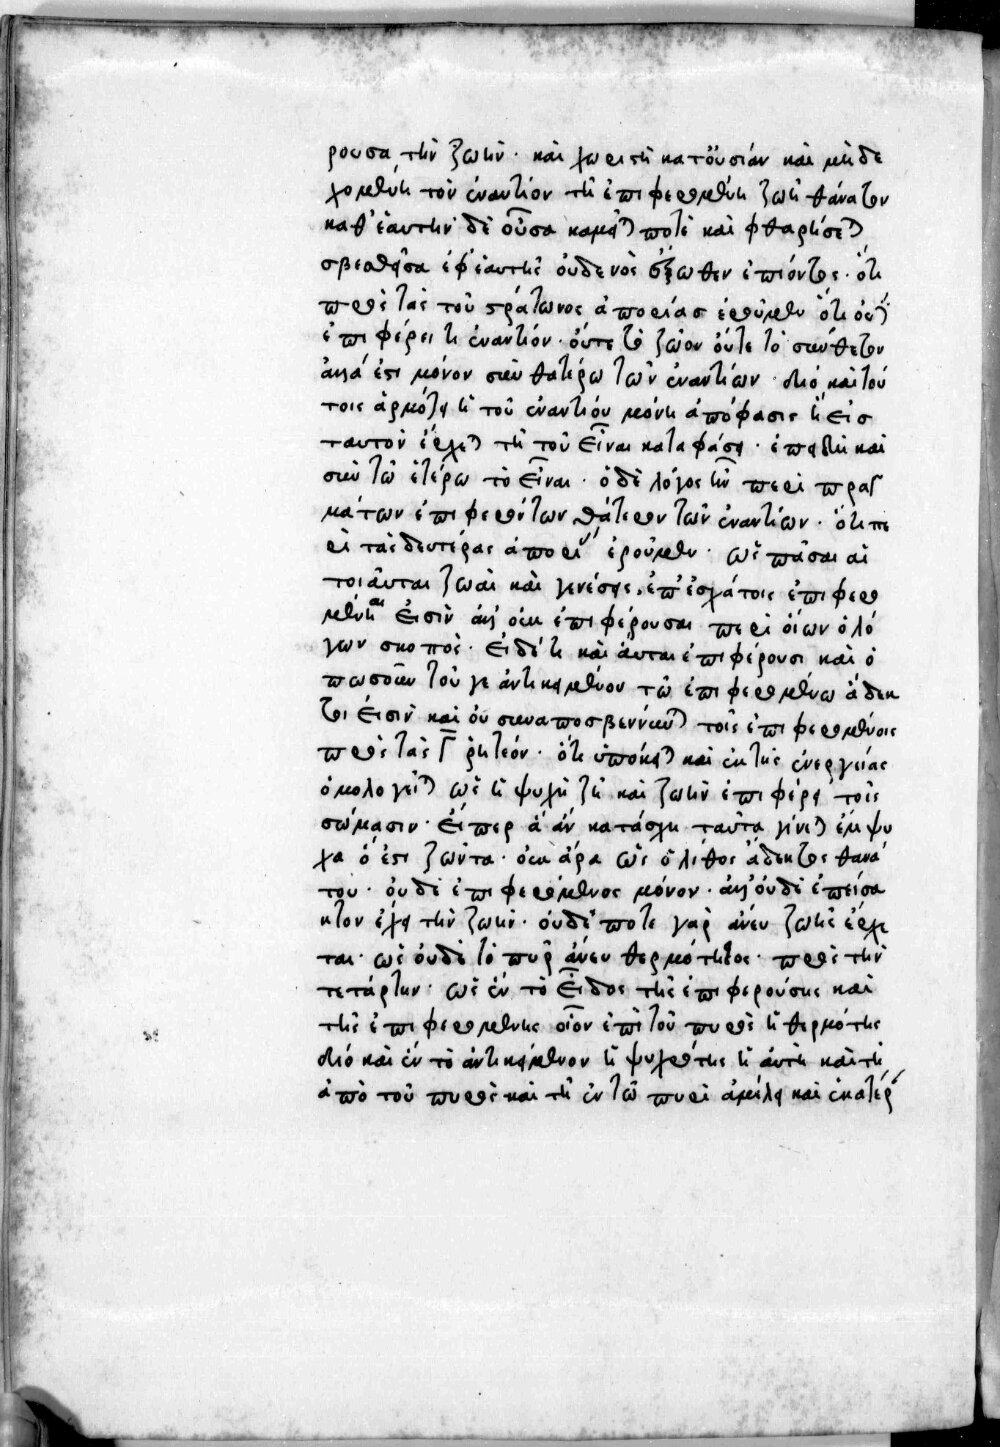 ρουσα τὴν ζωήν· καὶ χωριστὴ κατ' οὐσίαν καὶ μὴ δε
χομένη τὸν ἐναντίον τῇ ἐπιφερομένῃ ζωῇ θάνατον
καθ' ἑαυτὴν δὲ οὖσα καμεῖται ποτὲ καὶ φθαρήσεται
σβεσθεῖσα ἐφ' ἑαυτῆς οὐδενὸς ἔξωθεν ἐπιόντος· ὅτι
πρὸς τὰς τοῦ στράτωνος ἀπορίας ἐροῦμεν ὅτι
ἐπιφέρει τι ἐναντίον· οὔτε τὸ ζῶον οὔτε τὸ σύνθετον
ἀλλά ἐστι μόνον σὺν θατέρω τῶν ἐναντίων· διὸ καὶ τού
τοις ἁρμόζει ἡ τοῦ ἐναντίου μόνη ἀπόφασις ἢ εἰς
ταυτὸν ἔρχεται τῇ τοῦ εἶναι καταφάσει· ἐπειδὴ καὶ
σὺν τῷ ἑτέρω τὸ εἶναι· ὁ δὲ λόγος ἦν περὶ πραγ
μάτων ἐπιφερόντων θάτερον τῶν ἐναντίων· ὅτι πε
ρὶ τὰς δευτέρας ἀπορίας ἐροῦμεν· ὡς πᾶσαι αἱ
τοιαῦται ζωαὶ καὶ γενέσεις ἐπ' ἐσχάτοις ἐπιφερό
μεναι εἰσὶν ἀλλ' οὐκ ἐπιφέρουσαι περὶ οἵων ὁ λό
γων σκοπός· εἰ δέ τι καὶ αὗται ἐπιφέρουσι καὶ ὁ
πωσοῦν τοῦ γε ἀντικειμένου τῷ ἐπιφερομένω ἄδεκ
τοι εἰσὶν καὶ οὐ συναποσβέννυνται τοῖς ἐπιφερομένοις
πρὸς τὰς Γ ῥητέον· ὅτι ὑπόκειται καὶ ἐκ τῆς ἐνεργείας
ὁμολογεῖται ὡς ἡ ψυχὴ ζῇ καὶ ζωὴν ἐπιφέρει τοῖς
σώμασιν· εἴπερ ἃ ἂν κατάσχη ταῦτα γίνεται ἔμψυ
χα ὅ ἐστι ζῶντα· οὐκ ἄρα ὡς ὁ λίθος ἄδεκτος θανά
του· οὐδὲ ἐπιφερόμενος μόνον· ἀλλ' οὐδὲ ἐπείσα
κτον ἔχει τὴν ζωήν· οὐδέποτε γὰρ ἄνευ ζωῆς ἔρχε
ται· ὡς οὐδὲ τὸ πῦρ ἄνευ θερμότητος· πρὸς τὴν
τετάρτην· ὡς ἓν τὸ εἶδος τῆς ἐπιφερούσης καὶ
τῆς ἐπιφερομένης οἷον ἐπὶ τοῦ πυρὸς ἡ θερμότης
διὸ καὶ ἓν τὸ ἀντικείμενον ἡ ψυχρότης ἡ αὐτὴ καὶ τῇ
ἀπὸ τοῦ πυρὸς καὶ τῇ ἐν τῷ πυρὶ ἀμέλει καὶ ἑκατέρ